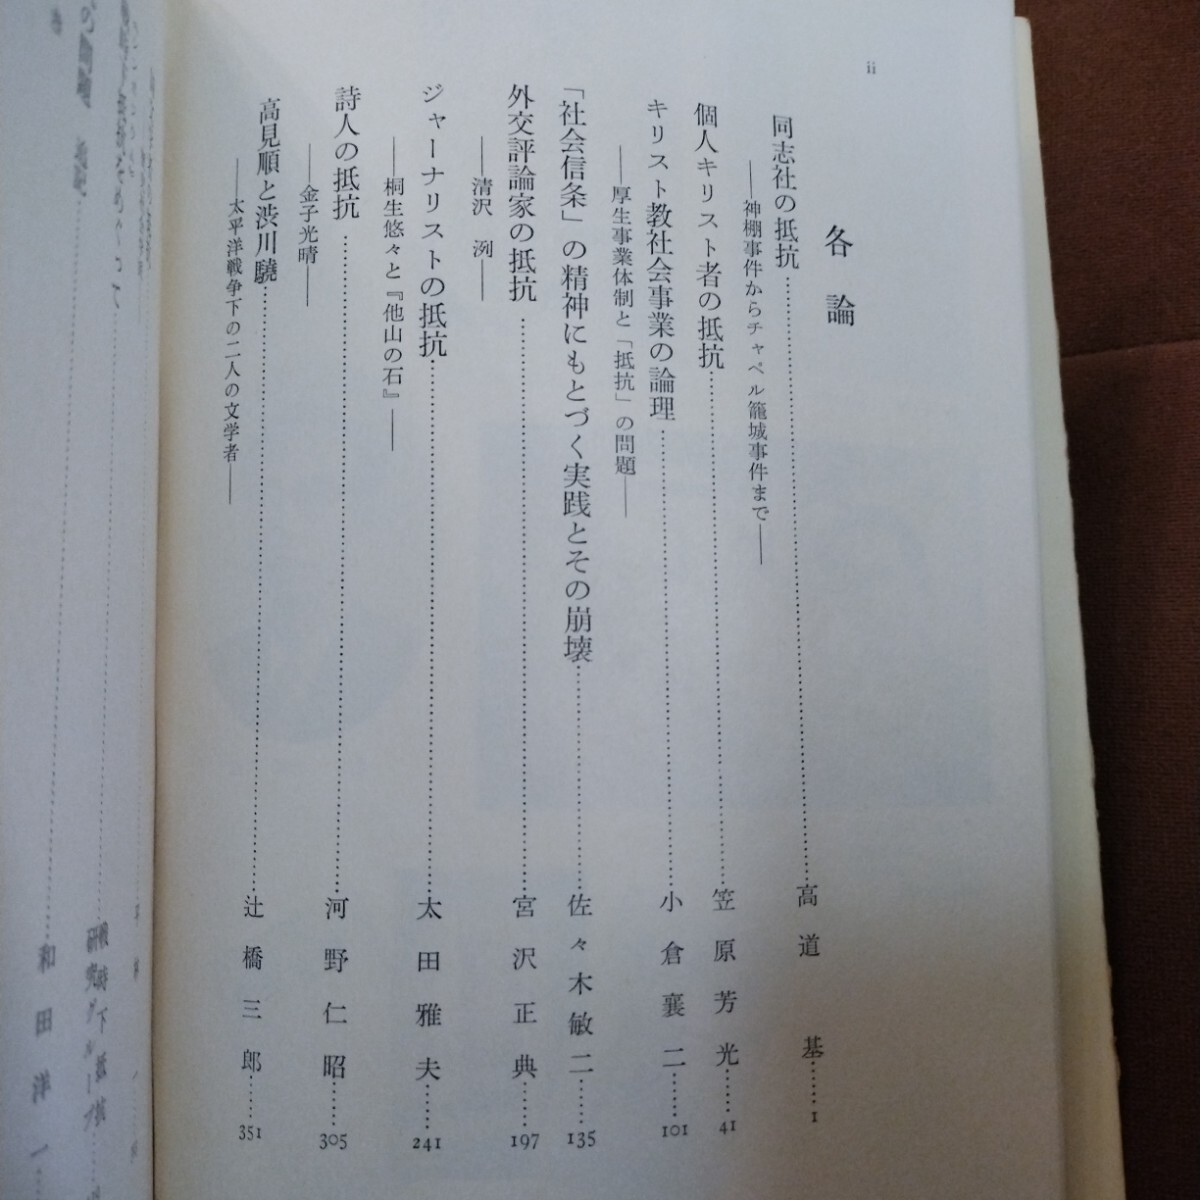 ii
各論
同志社の抵抗……高道 基……1
――神棚事件からチャペル籠城事件まで――
個人キリスト者の抵抗……笠原芳光……41
キリスト教社会事業の論理……小倉襄二……101
――厚生事業体制と「抵抗」の問題――
「社会信条」の精神にもとづく実践とその崩壊……佐々木敏二……135
外交評論家の抵抗……宮沢正典……197
――清沢 洌――
ジャーナリストの抵抗……太田雅夫……241
――桐生悠々と『他山の石』――
詩人の抵抗……河野仁昭……305
――金子光晴――
高見順と渋川驍……辻橋三郎……351
――太平洋戦争下の二人の文学者――
戦時下抵抗
研究グループ
和田洋一